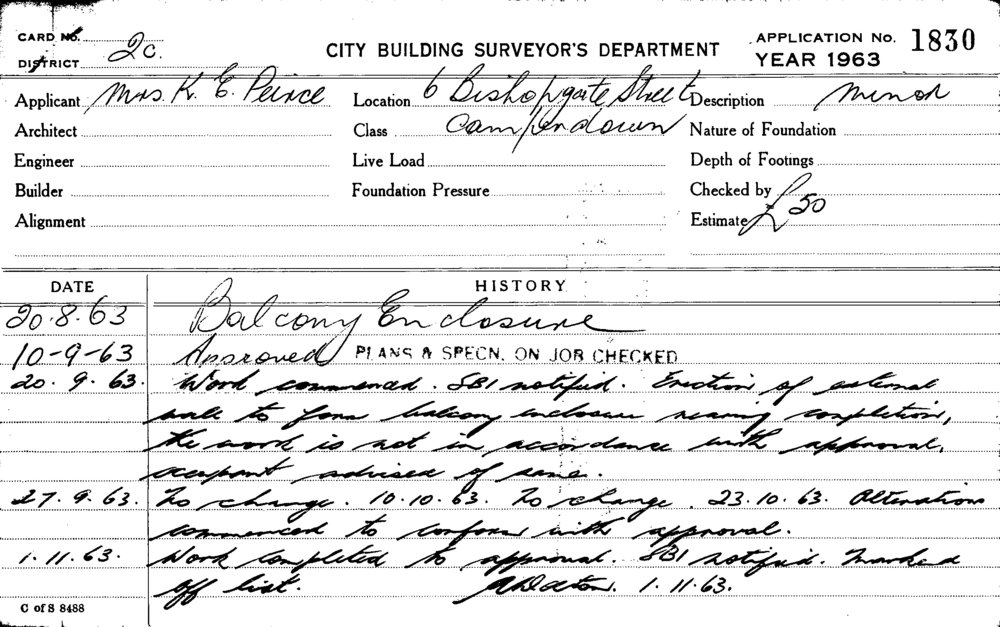 CARD No. 2c. CITY BUILDING SURVEYOR'S DEPARTMENT APPLICATION No. 1830
DISTRICT YEAR 1963
Applicant Mrs. K. E. Peirce Location 6 Bishopgate Street Description Minor
Architect Class Camperdown Nature of Foundation
Engineer Live Load Depth of Footings
Builder Foundation Pressure Checked by
Alignment Estimate £50
DATE HISTORY
20.8.63 Balcony Enclosure
10-9-63 Approved PLANS & SPECN. ON JOB CHECKED
20.9.63. Work commenced. SBI notified. Erection of external
wall to form balcony enclosure nearing completion,
the work is not in accordance with approval,
occupant advised of same.
27.9.63. No change. 10.10.63. No change. 23.10.63. Alterations
commenced to conform with approval.
1.11.63. Work completed to approval. SBI notified. Marked
off list. 1.11.63.
C of S 8488